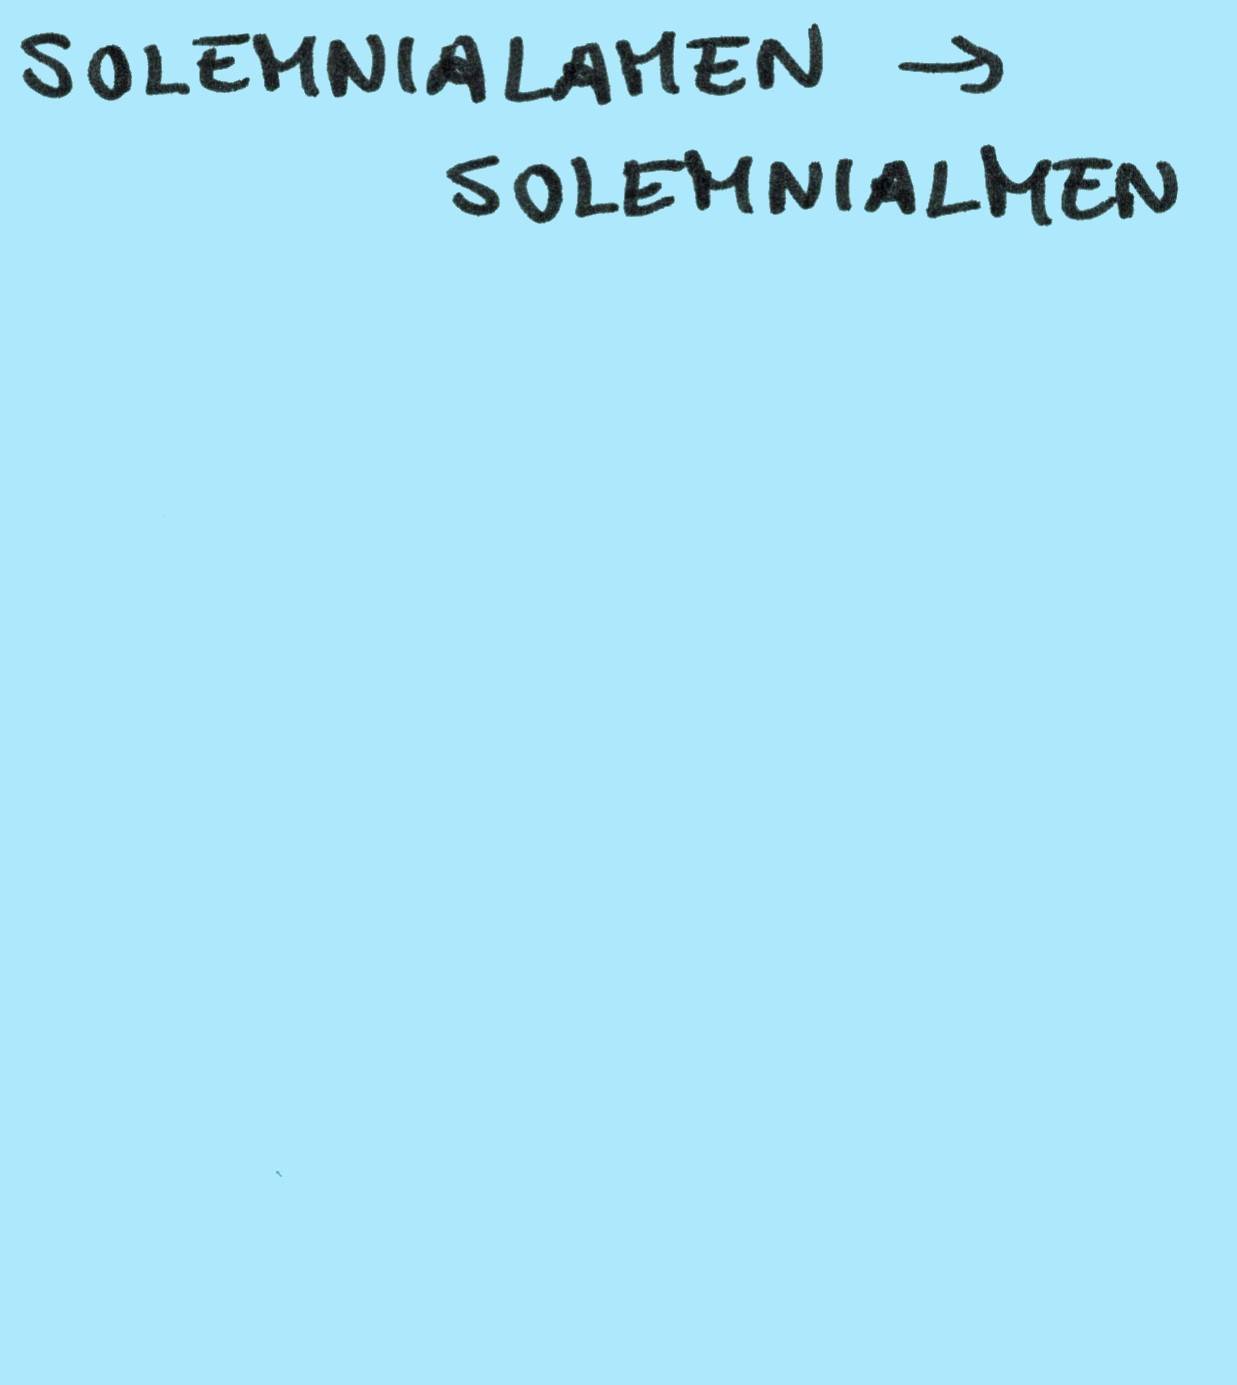 SOLEMNIALAMEN →
SOLEMNIALMEN